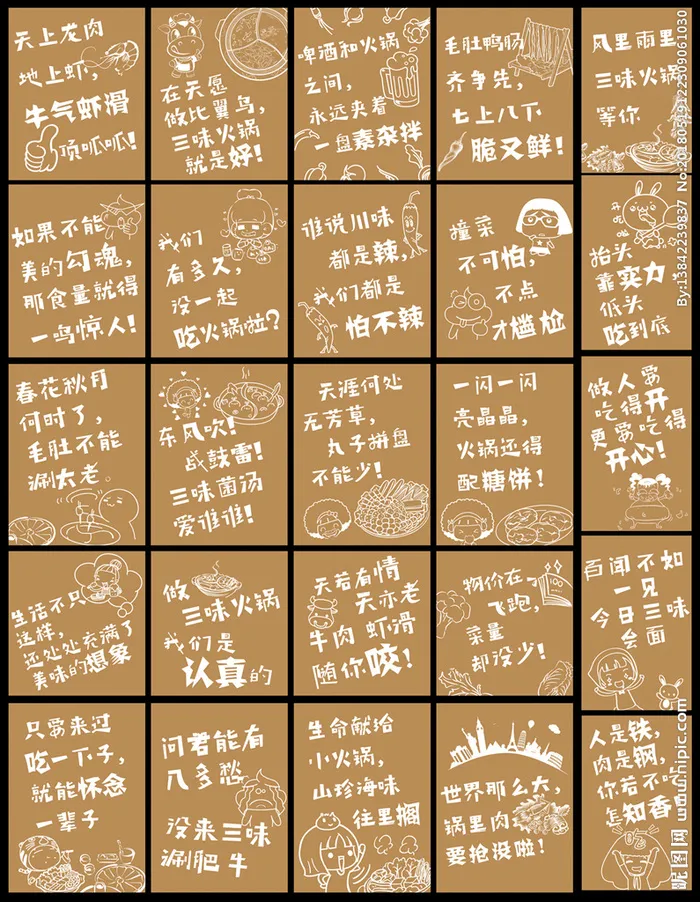 天上龙肉
地上虾，
牛气虾滑
顶呱呱！
在天愿
做比翼鸟，
三味火锅
就是好！
啤酒和火锅
之间，
永远夹着
一盘素杂拌
毛肚鸭肠
齐争先，
七上八下
脆又鲜！
风里雨里
三味火锅
等你
如果不能
美的勾魂，
那食量就得
一鸣惊人！
我们
有多久，
没一起
吃火锅啦？
谁说川味
都是辣，
我们都是
怕不辣
撞菜
不可怕，
不点
才尴尬
抬头
靠实力
低头
吃到底
春花秋月
何时了，
毛肚不能
涮太老。
东风吹！
战鼓雷！
三味菌汤
爱谁谁！
天涯何处
无芳草，
丸子拼盘
不能少！
一闪一闪
亮晶晶，
火锅还得
配糖饼！
做人要
吃得开
更要吃得
开心！
生活不只
这样，
还处处充满了
美味的想象
做
三味火锅
我们是
认真的
天若有情
天亦老
牛肉 虾滑
随你咬！
物价在
飞跑，
菜量
却没少！
百闻不如
一见
今日三味
会面
只要来过
吃一下子，
就能怀念
一辈子
问君能有
几多愁
没来三味
涮肥牛
生命献给
小火锅，
山珍海味
往里搁
世界那么大，
锅里肉
要抢没啦！
人是铁，
肉是钢，
你若不吃
怎知香
By:13842239837 No:20180519122309061030
昵图网 www.nipic.com